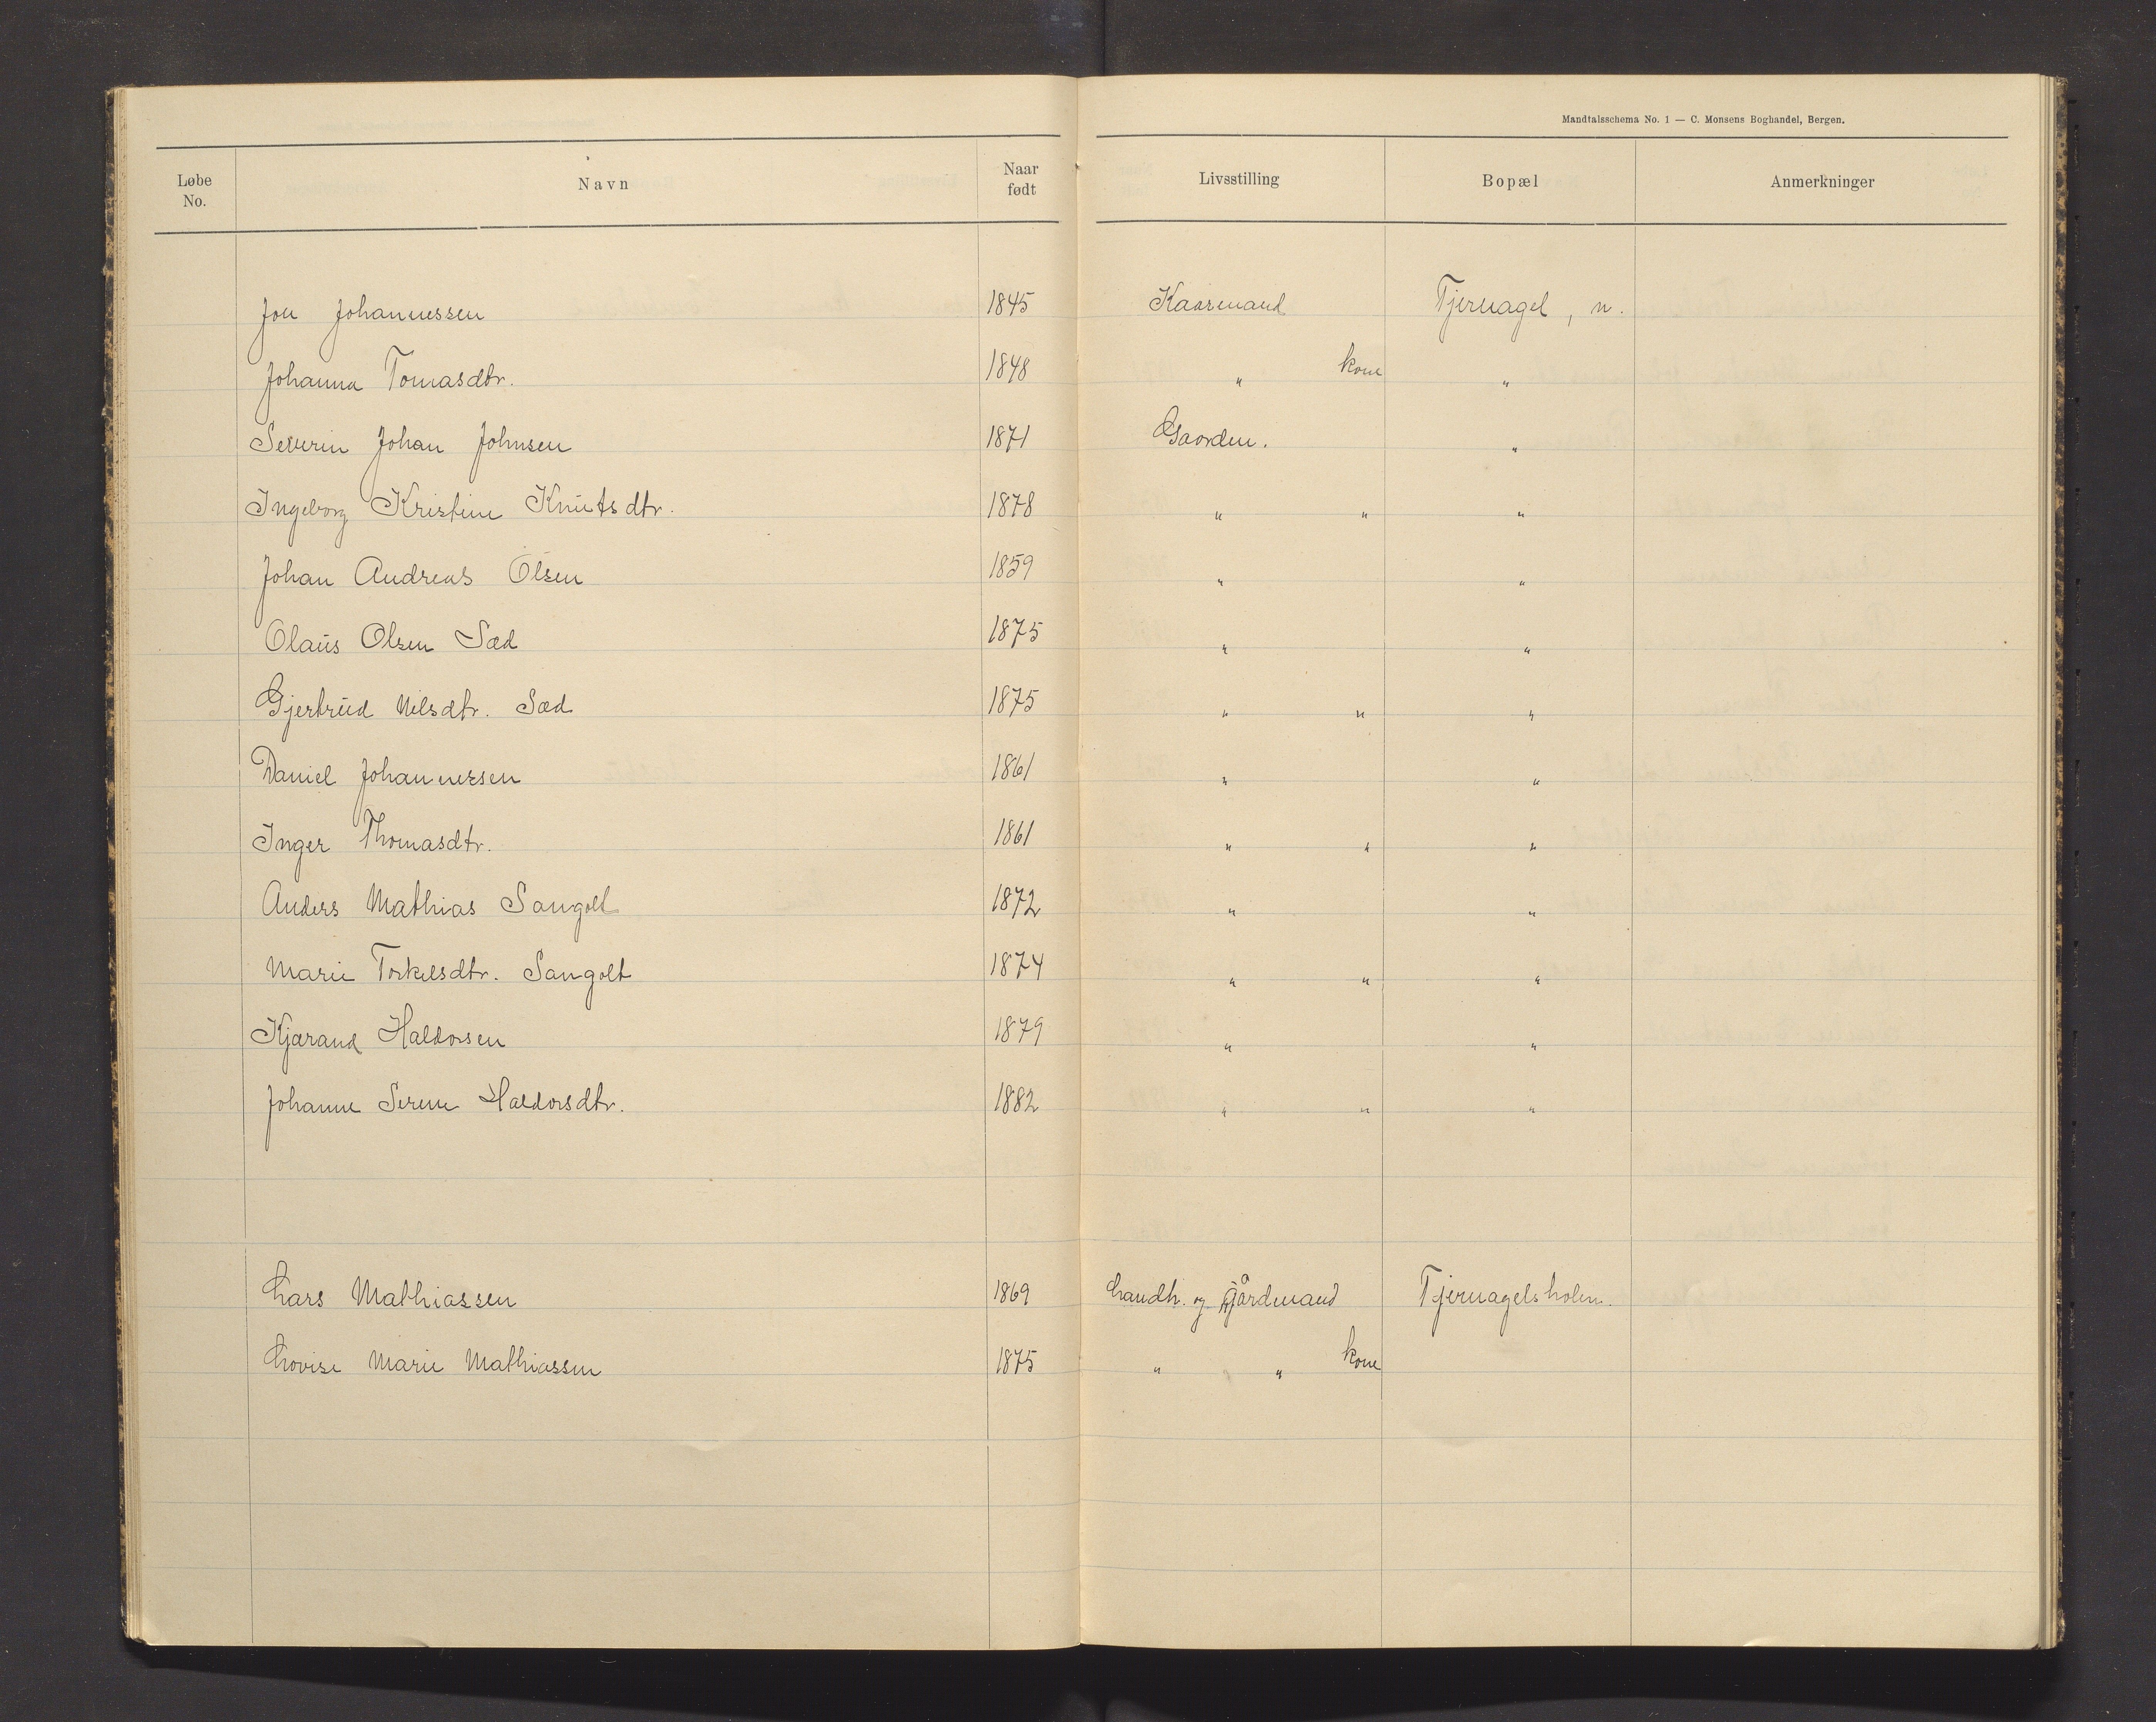 Mandtalsschema No. 1 — C. Monsens Boghandel, Bergen.
Løbe No. Navn Naar født Livsstilling Bopæl Anmerkninger
Jon Johannessen 1845 Kaarmand Tjernagel, n.
Johanna Tomasdtr. 1848 " kone "
Severin Johan Johnsen 1871 Gaardm. "
Ingeborg Kristine Knutsdtr. 1878 " " "
Johan Andreas Olsen 1859 " "
Olaus Olsen Sæd 1875 " "
Gjertrud Nilsdtr. Sæd 1875 " " "
Daniel Johannessen 1861 " "
Inger Thomasdtr. 1861 " " "
Anders Mathias Sangolt 1872 " "
Marie Torkelsdtr. Sangolt 1874 " " "
Kjærand Haldorsen 1879 " "
Johanne Serene Haldorsdtr. 1882 " " "
Lars Mathiassen 1869 Landh. og gårdmand Tjernagelsholm.
Lovise Marie Mathiassen 1875 " " kone